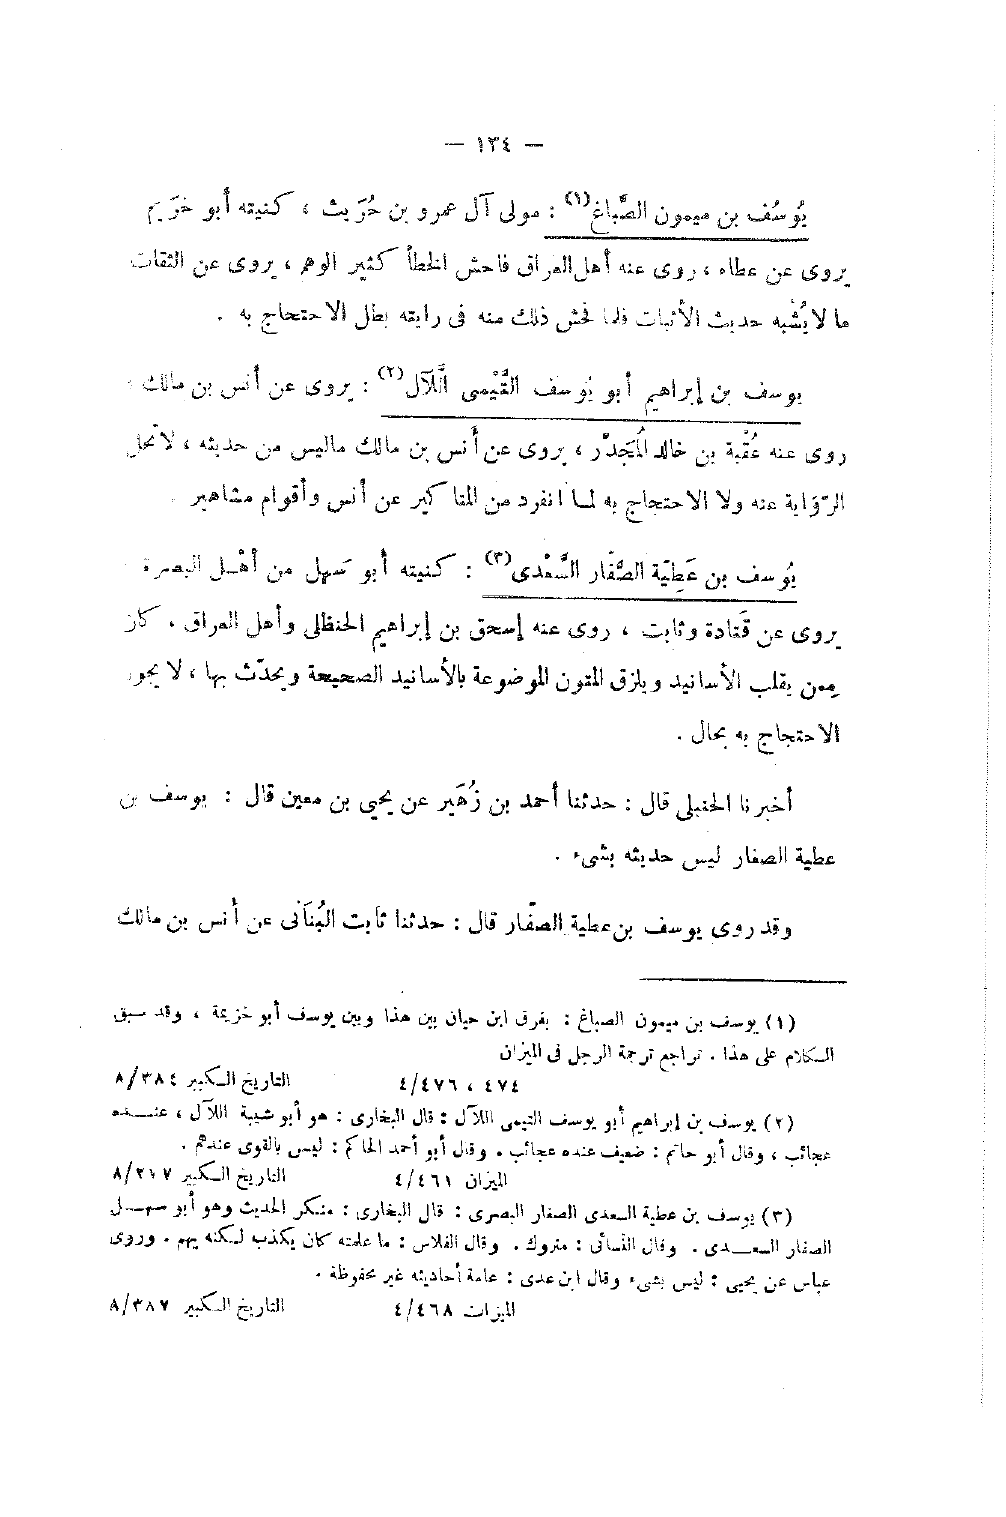 — ١٣٤ —
يُوسُف بن ميمون الصَّباغ(١) : مولى آل عمرو بن حُرَيث ، كنيته أبو خزَيم
يروى عن عطاء ، روى عنه أهل العراق فاحش الخطأ كثير الوهم ، يروى عن الثقات
ما لا يُشْبه حديث الأثبات فلما فحش ذلك منه فى رايته بطل الاحتجاج به .
يوسف بن إبراهيم أبو يُوسف التَّيْمى الَّلآل(٢) : يروى عن أنس بن مالك ،
روى عنه عُقْبة بن خالد المُجَدَّر ، يروى عن أنس بن مالك ماليس من حديثه ، لا تحل
الرّوَاية عنه ولا الاحتجاج به لمـا انفرد من المناكير عن أنس وأقوام مشاهير .
يُوسف بن عَطِيَّة الصَّفَّار السَّعْدى(٣) : كنيته أبو سَهل من أهْـل البصرة
يروى عن قَتادة وثابت ، روى عنه إسحق بن إبراهيم الحنظلى وأهل العراق ، كان
مِمن يقلب الأسانيد ويلزق المتون الموضوعة بالأسانيد الصحيحة ويحدّث بها ، لا يجوز
الاحتجاج به بحال .
أخبرنا الحنبلى قال : حدثنا أحمد بن زُهَير عن يحيى بن معين قال : يوسف بن
عطية الصفار ليس حديثه بشىء .
وقد روى يوسف بن عطية الصفَّار قال : حدثنا ثابت البُنَانى عن أنس بن مالك
(١) يوسف بن ميمون الصباغ : يفرق ابن حيان بين هذا وبين يوسف أبو خزيمة ، وقد سبق
الكلام على هذا . تراجع ترجمة الرجل فى الميزان
٤٧٤ ، ٤/٤٧٦ التاريخ الكبير ٨/٣٨٤
(٢) يوسف بن إبراهيم أبو يوسف التيمى اللآل : قال البخارى : هو أبو شيبة اللآل ، عنـــده
عجائب ، وقال أبو حاتم : ضعيف عنده عجائب . وقال أبو أحمد الحاكم : ليس بالقوى عندهم .
الميزان ٤/٤٦١ التاريخ الكبير ٨/٣٧٧
(٣) يوسف بن عطية السعدى الصفار البصرى : قال البخارى : منكر الحديث وهو أبو سهـــل
الصفار السعـــدى . وقال النسائى : متروك . وقال الفلاس : ما علمته كان يكذب لكنه يهم . وروى
عباس عن يحيى : ليس بشىء وقال ابن عدى : عامة أحاديثه غير محفوظة .
الميزان ٤/٤٦٨ التاريخ الكبير ٨/٣٨٧